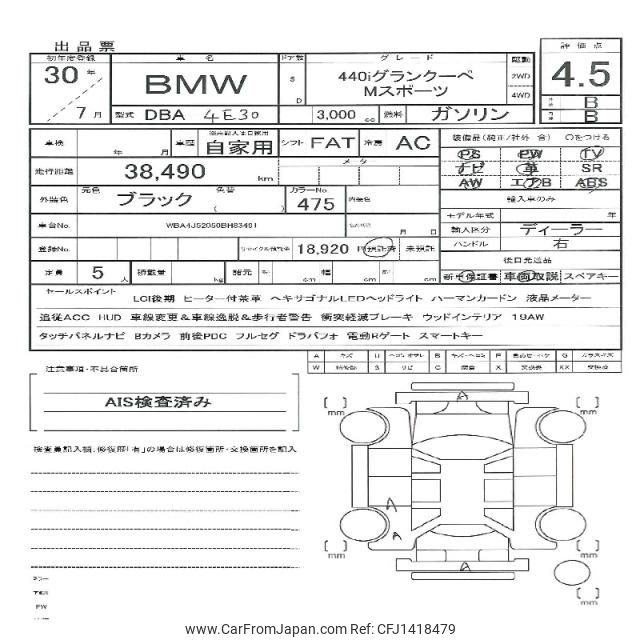 出品票
初年度登録 車名 ドア数 グレード 駆動 評価点
30年 BMW 5 D 440iグランクーペ 2WD 4.5
Mスポーツ 4WD
7月 型式 DBA 4E30 3,000 cc 燃料 ガソリン B
B
車検 年 月 車歴 自家用 シフト FAT 冷房 AC 装備品(純正/社外 含) ○をつける
PS PW TV
走行距離 38,490 km メータ ナビ 革 SR
AW エアB ABS
外装色 元色 ブラック 色替 ( ) カラーNo 475 内装色 輸入車のみ
モデル年式 年
車台No. WBA4J52050BH83401 月 日 輸入区分 ディーラー
ハンドル 右
登録No. リサイクル預託金 18,920 円 預託済 未預託 後日発送品
定員 5人 積載量 kg 諸元 cm cm cm 新車保証書 車両取説 スペアキー
セールスポイント LCI後期 ヒーター付茶革 ヘキサゴナルLEDヘッドライト ハーマンカードン 液晶メーター
追従ACC HUD 車線変更&車線逸脱&歩行者警告 衝突軽減ブレーキ ウッドインテリア 19AW
タッチパネルナビ Bカメラ 前後PDC フルセグ ドラパフォ 電動Rゲート スマートキー
注意事項・不具合箇所
AIS検査済み
検査員記入欄、修復歴「有」の場合は修復箇所・交換箇所を記入
A U B P G
W S C X XX
[ ] mm A [ ] mm
A
A
[ ] mm A [ ] mm
[ ] mm
PW
www.CarFromJapan.com Ref: CFJ1418479